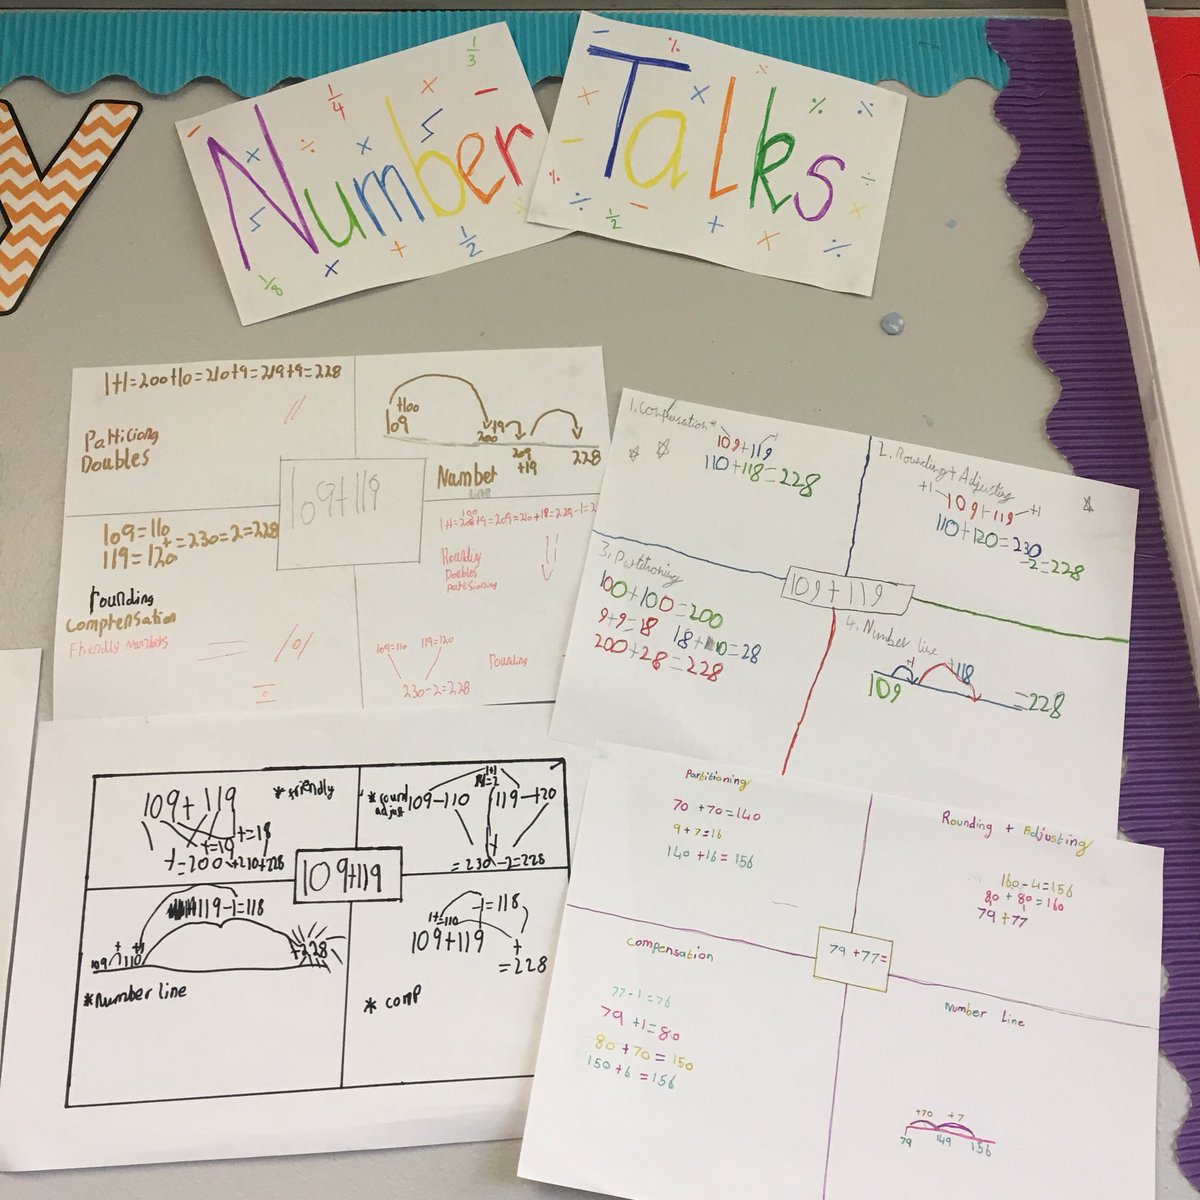 y
Number
Talks
1+1=200+10=210+9=219+9=228
Partitiong
Doubles
+100
109
200
209
+19
228
Number
line
109+119
109=110
119=120
+
=230=2=228
rounding
Comptensation
Friendly Numbers
Rounding
Doubles
partisioning
109=110
119=120
230-2=228
Rounding
1. Compensation
109+119
110+118=228
2. Rounding + Adjusting
+1
109+119
+1
110+120=230
-2=228
109+119
3. Partitioning
100+100=200
9+9=18
18+10=28
200+28=228
4. Number line
+1
+118
109
=228
109+119
*friendly
+=18
+=19
+=200+210+228
*round
adjust
109-110
119-120
=230-2=228
109+119
119-1=118
109
110
+228
*Number line
-1=118
1+=110
109+119
+
=228
* comp
Partitioning
70+70=140
9+7=16
140+16=156
Rounding + Adjusting
160-4=156
80+80=160
79+77
79+77=
compensation
77-1=76
79+1=80
80+70=150
150+6=156
Number Line
+70
+7
79
149
156